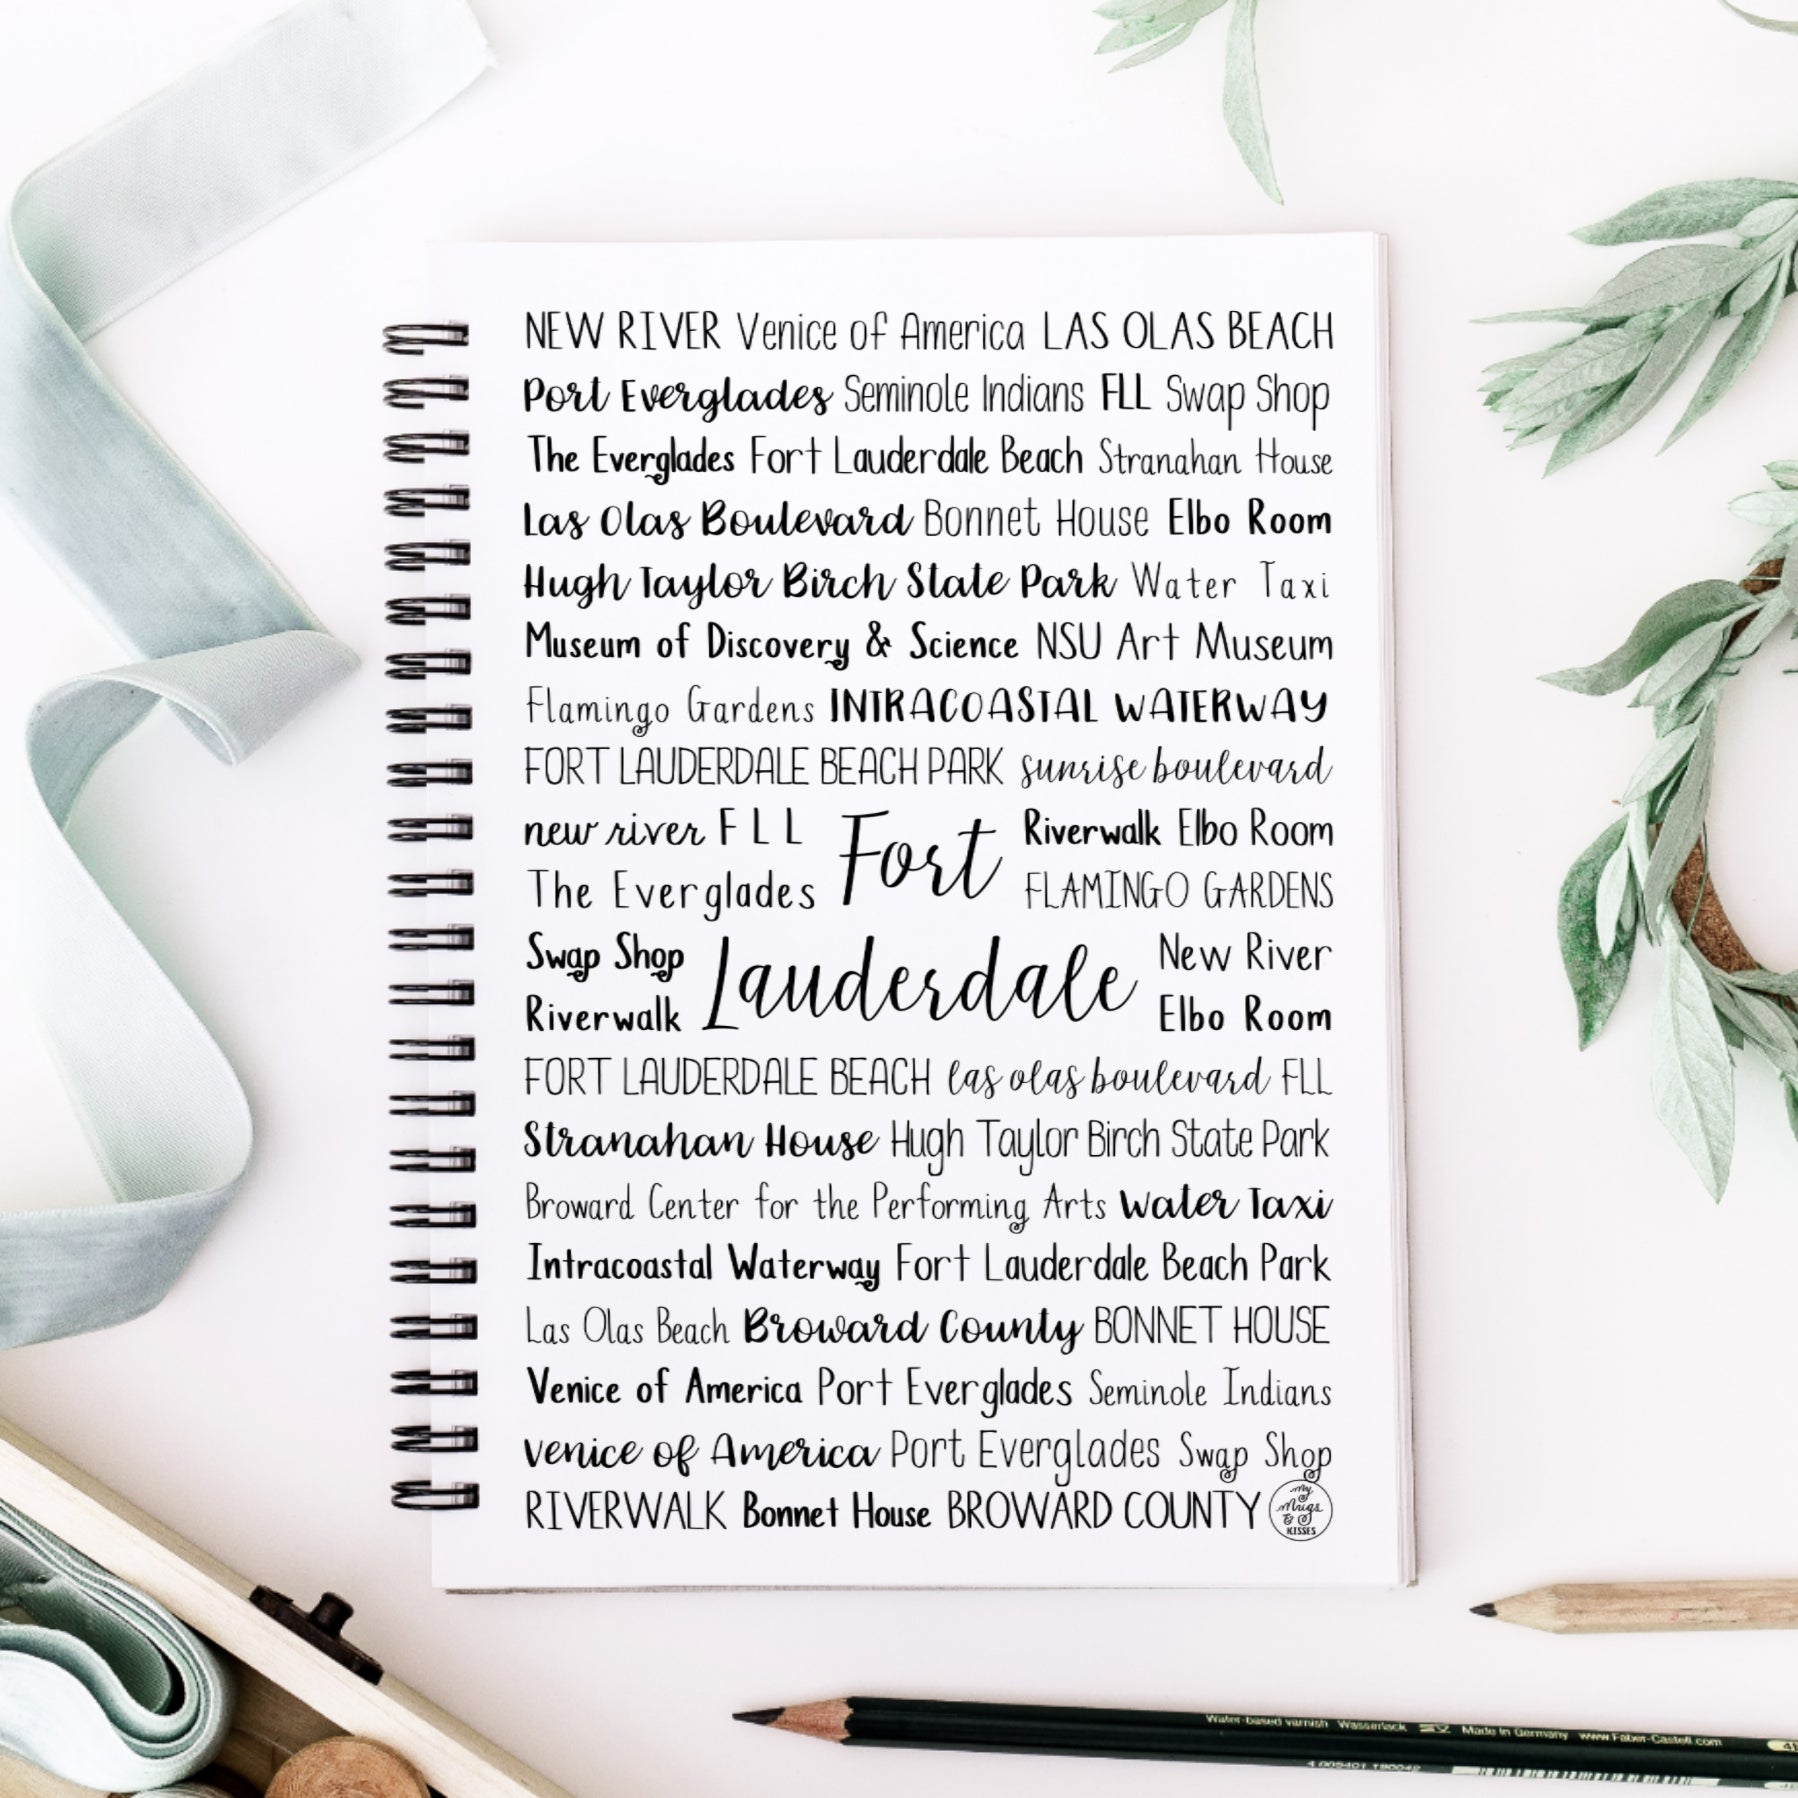 NEW RIVER Venice of America LAS OLAS BEACH
Port Everglades Seminole Indians FLL Swap Shop
The Everglades Fort Lauderdale Beach Stranahan House
Las Olas Boulevard Bonnet House Elbo Room
Hugh Taylor Birch State Park Water Taxi
Museum of Discovery & Science NSU Art Museum
Flamingo Gardens INTRACOASTAL WATERWAY
FORT LAUDERDALE BEACH PARK sunrise boulevard
new river FLL Fort Riverwalk Elbo Room
The Everglades FLAMINGO GARDENS
Swap Shop Lauderdale New River
Riverwalk Elbo Room
FORT LAUDERDALE BEACH las olas boulevard FLL
Stranahan House Hugh Taylor Birch State Park
Broward Center for the Performing Arts Water Taxi
Intracoastal Waterway Fort Lauderdale Beach Park
Las Olas Beach Broward County BONNET HOUSE
Venice of America Port Everglades Seminole Indians
venice of America Port Everglades Swap Shop
RIVERWALK Bonnet House BROWARD COUNTY
My
Mugs
&
KISSES
Water-based varnish Wasserlack Made in Germany www.Faber-Castell.com
4 005401 190042